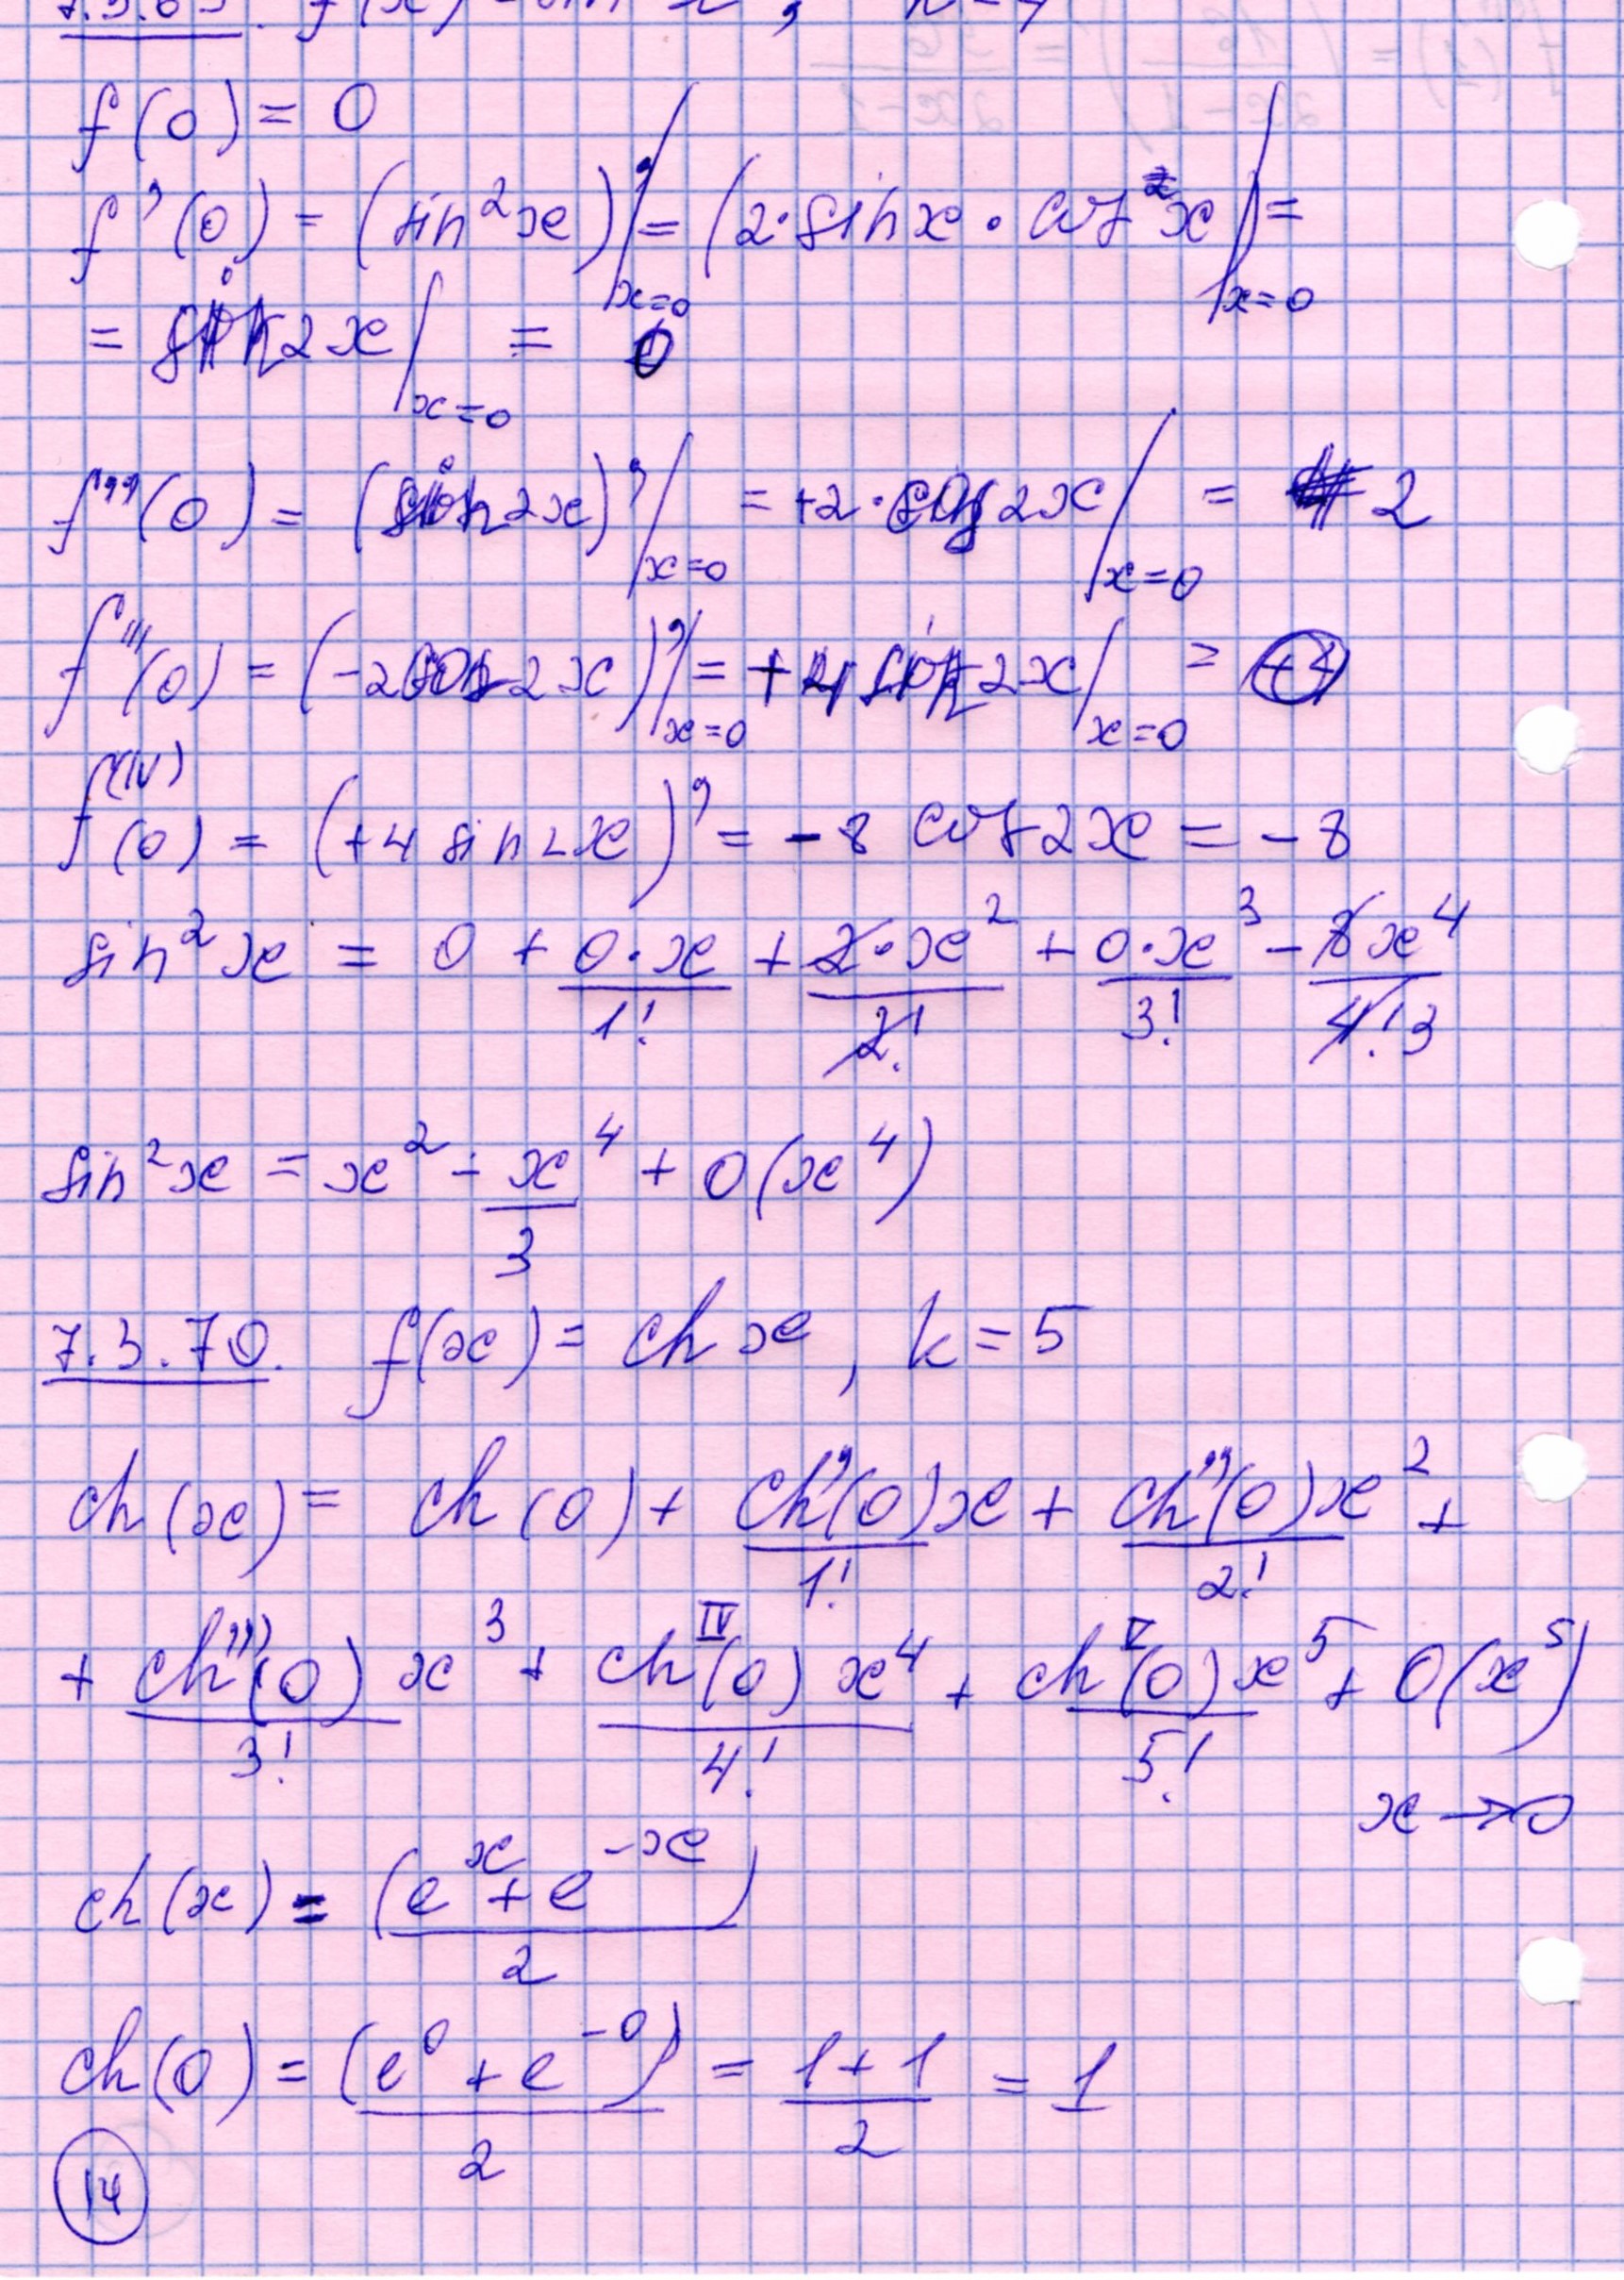 f(0) = 0
f'(0) = (sin²x)'|x=0 = (2·sinx·cos x)|x=0 =
= sin2x|x=0 = 0
f''(0) = (sin2x)'|x=0 = +2·cos2x|x=0 = 2
f'''(0) = (-2cos2x)'|x=0 = +4sin2x|x=0 =
f(IV)(0) = (+4 sin2x)' = -8 cos2x = -8
sin²x = 0 + 0·x/1! + 2·x²/2! + 0·x³/3! - 8x⁴/4!3
sin²x = x² - x⁴/3 + O(x⁴)
7.3.70. f(x) = ch x, k = 5
ch(x) = ch(0) + ch'(0)x/1! + ch''(0)x²/2! +
+ ch'''(0)x³/3! + chIV(0)x⁴/4! + chV(0)x⁵/5! + O(x⁵)
x→0
ch(x) = (eˣ + e⁻ˣ)/2
ch(0) = (e⁰ + e⁻⁰)/2 = (1+1)/2 = 1
14